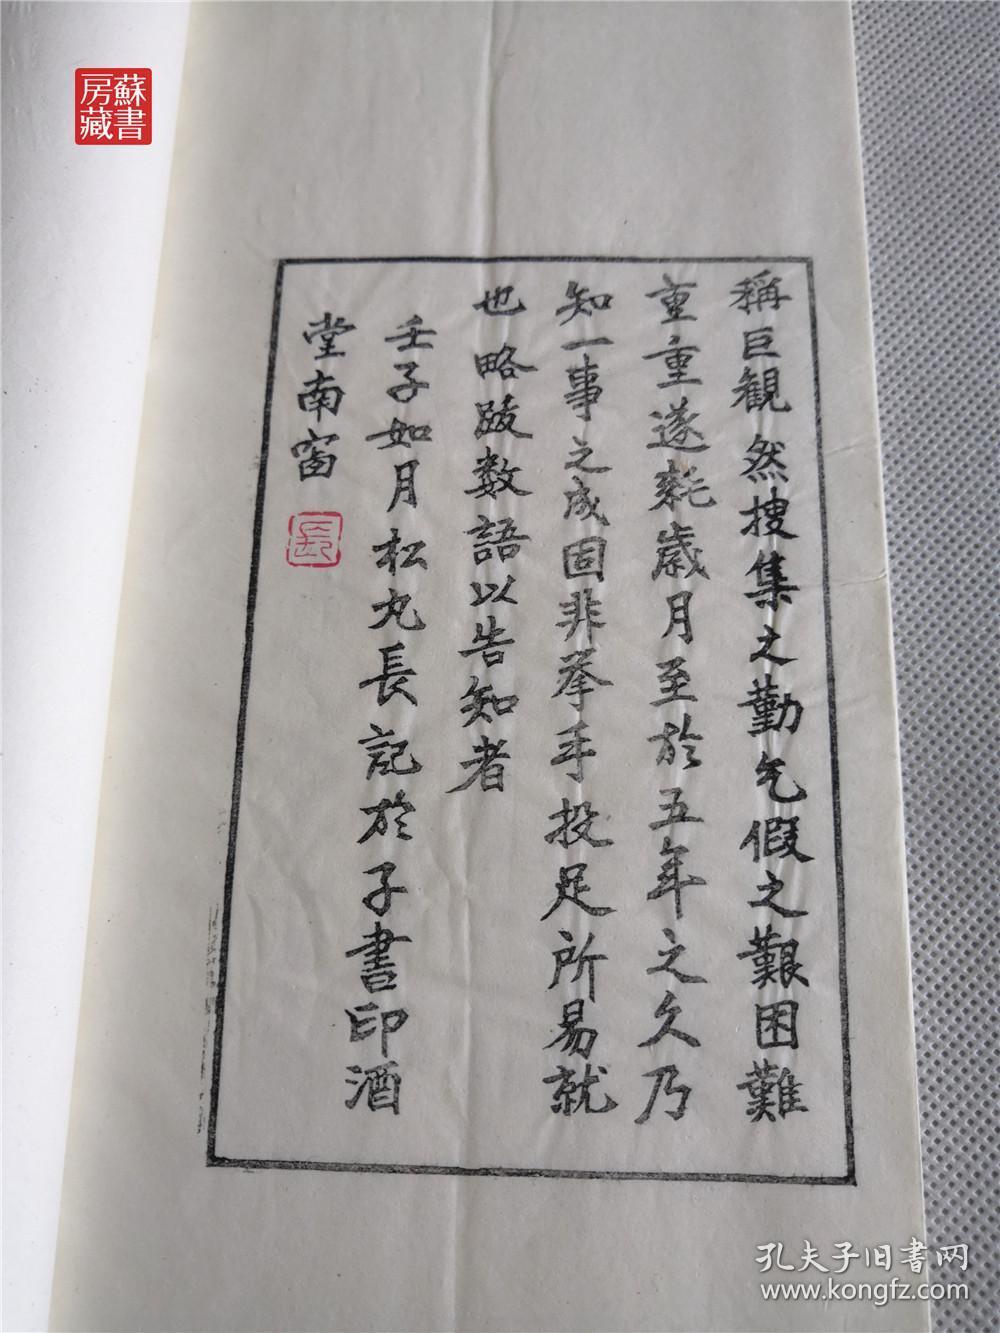 稱巨観然捜集之勤乞假之艱困難
重重遂耗歳月至於五年之久乃
知一事之成固非挙手投足所易就
也略跋数語以告知者
壬子如月松丸長記於子書印酒
堂南窗
長
蘇書
房藏
孔夫子旧書网
www.kongfz.com